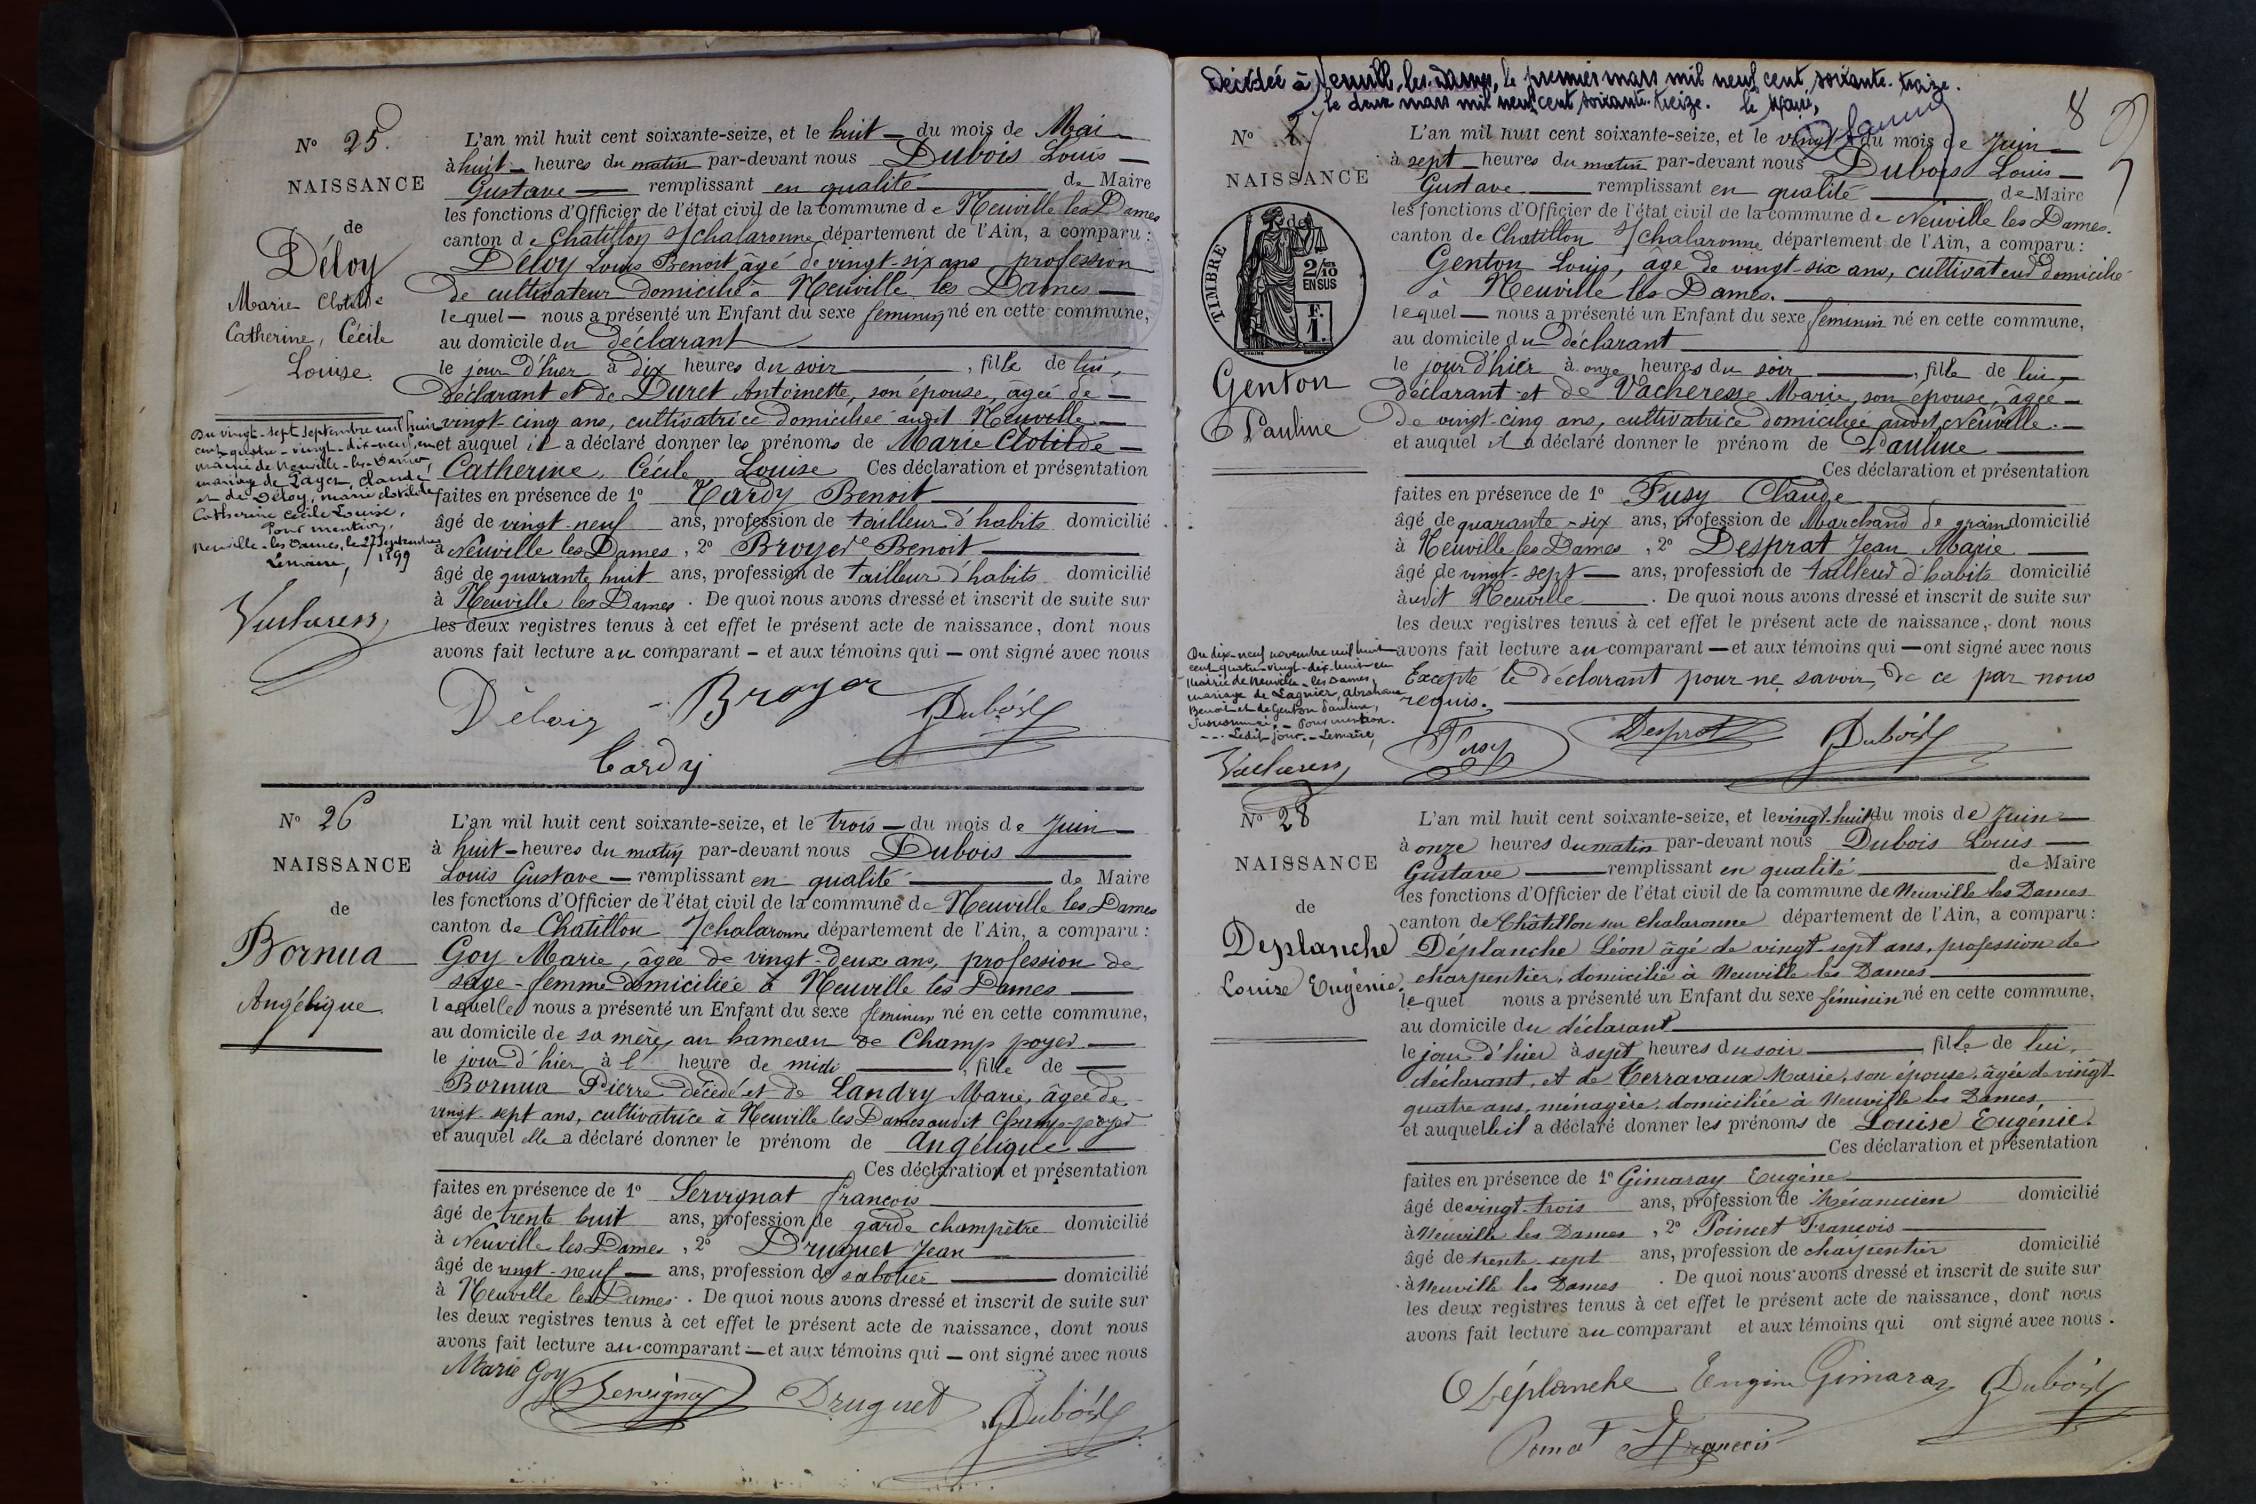 N° 25.
NAISSANCE
de
Déloy
Marie Clotilde
Catherine, Cécile
Louise
L'an mil huit cent soixante-seize, et le huit du mois de Mai
à huit heures du matin par-devant nous Dubois Louis
Gustave remplissant en qualité de Maire
les fonctions d'Officier de l'état civil de la commune de Neuville les Dames
canton de Chatillon s/chalaronne département de l'Ain, a comparu :
Déloy Louis Benoit âgé de vingt-six ans profession
de cultivateur domicilié à Neuville les Dames
lequel nous a présenté un Enfant du sexe feminin né en cette commune,
au domicile du déclarant
le jour d'hier à dix heures du soir, fille de lui,
déclarant et de Duret Antoinette, son épouse, âgée de
vingt-cinq ans, cultivatrice domiciliée audit Neuville
et auquel il a déclaré donner les prénoms de Marie Clotilde
Catherine, Cécile Louise Ces déclaration et présentation
faites en présence de 1° Tardy Benoit
âgé de vingt-neuf ans, profession de tailleur d'habits domicilié
à Neuville les Dames, 2° Broyer Benoit
âgé de quarante huit ans, profession de tailleur d'habits domicilié
à Neuville les Dames. De quoi nous avons dressé et inscrit de suite sur
les deux registres tenus à cet effet le présent acte de naissance, dont nous
avons fait lecture au comparant — et aux témoins qui — ont signé avec nous
Du vingt-sept septembre mil huit
cent quatre-vingt-dix-neuf, en
mairie de Neuville-les-Dames,
mariage de Layer, Claude
et de Déloy, marie clotilde
Catherine Cécile Louise,
Pour mention,
Neuville-les-Dames, le 27 Septembre
Lemaire, 1899
Déloiy Broyer Dubois
Tardy
N° 26
NAISSANCE
de
Bornua
Angélique
L'an mil huit cent soixante-seize, et le trois du mois de Juin
à huit heures du matin par-devant nous Dubois
Louis Gustave remplissant en qualité de Maire
les fonctions d'Officier de l'état civil de la commune de Neuville les Dames
canton de Chatillon s/chalaronne département de l'Ain, a comparu :
Goy Marie, âgée de vingt-deux ans, profession de
sage-femme domiciliée à Neuville les Dames
laquelle nous a présenté un Enfant du sexe feminin né en cette commune,
au domicile de sa mère, au hameau de Champ poyer
le jour d'hier à l' heure de midi, fille de
Bornua Pierre décédé et de Landry Marie, âgée de
vingt-sept ans, cultivatrice à Neuville les Dames audit Champ-poyer
et auquel elle a déclaré donner le prénom de Angélique
Ces déclaration et présentation
faites en présence de 1° Servignat françois
âgé de trente huit ans, profession de garde champêtre domicilié
à Neuville les Dames, 2° Druguet Jean
âgé de vingt-neuf ans, profession de sabotier domicilié
à Neuville les Dames. De quoi nous avons dressé et inscrit de suite sur
les deux registres tenus à cet effet le présent acte de naissance, dont nous
avons fait lecture au comparant — et aux témoins qui — ont signé avec nous
Marie Goy Servignat Druguet Dubois
Décédée à Neuville-les-Dames, le premier mars mil neuf cent soixante-treize.
le deux mars mil neuf cent soixante-treize. le Maire,
8
N° 27
NAISSANCE
de
TIMBRE
2/10
EN SUS
F.
1.
Genton
Pauline
L'an mil huit cent soixante-seize, et le vingt du mois de Juin
à sept heures du matin par-devant nous Dubois Louis
Gustave remplissant en qualité de Maire
les fonctions d'Officier de l'état civil de la commune de Neuville les Dames.
canton de Chatillon s/chalaronne département de l'Ain, a comparu :
Genton Louis, age de vingt-six ans, cultivateur domicilié
à Neuville les Dames.
lequel — nous a présenté un Enfant du sexe feminin né en cette commune,
au domicile du déclarant
le jour d'hier à onze heures du soir, fille de lui
déclarant et de Vacheresse Marie, son épouse, âgée
de vingt-cinq ans, cultivatrice domiciliée audit Neuville.
et auquel il a déclaré donner le prénom de Pauline
Ces déclaration et présentation
faites en présence de 1° Fusy Claude
âgé de quarante-six ans, profession de Marchand de grain domicilié
à Neuville les Dames, 2° Desprat Jean Marie
âgé de vingt-sept ans, profession de tailleur d'habits domicilié
audit Neuville. De quoi nous avons dressé et inscrit de suite sur
les deux registres tenus à cet effet le présent acte de naissance, dont nous
avons fait lecture au comparant — et aux témoins qui — ont signé avec nous
Excepté le déclarant pour ne savoir, de ce par nous
requis.
Du dix-neuf novembre mil huit
cent quatre-vingt-dix-huit en
mairie de Neuville-les-Dames,
mariage de Lagnier, Abraham
Benoit et de Genton Pauline,
Susnommée. - Pour mention.
Ledit jour. - Lemaire,
Fusy Desprat Dubois
N° 28
NAISSANCE
de
Deplanche
Louise Eugénie.
L'an mil huit cent soixante-seize, et le vingt-huit du mois de Juin
à onze heures du matin par-devant nous Dubois Louis
Gustave remplissant en qualité de Maire
les fonctions d'Officier de l'état civil de la commune de Neuville les Dames
canton de Châtillon sur chalaronne département de l'Ain, a comparu :
Déplanche Léon âgé de vingt-sept ans, profession de
charpentier, domicilié à Neuville les Dames
lequel nous a présenté un Enfant du sexe féminin né en cette commune,
au domicile du déclarant
le jour d'hier à sept heures du soir, fille de lui,
déclarant, et de Terravaux Marie, son épouse, âgée de vingt
quatre ans, ménagère, domiciliée à Neuville les Dames
et auquel il a déclaré donner les prénoms de Louise Eugénie.
Ces déclaration et présentation
faites en présence de 1° Gimaray Eugène
âgé de vingt-trois ans, profession de Mécanicien domicilié
à Neuville les Dames, 2° Poincet François
âgé de trente-sept ans, profession de charpentier domicilié
à Neuville les Dames. De quoi nous avons dressé et inscrit de suite sur
les deux registres tenus à cet effet le présent acte de naissance, dont nous
avons fait lecture au comparant et aux témoins qui ont signé avec nous.
Déplanche Eugène Gimaray Dubois
François